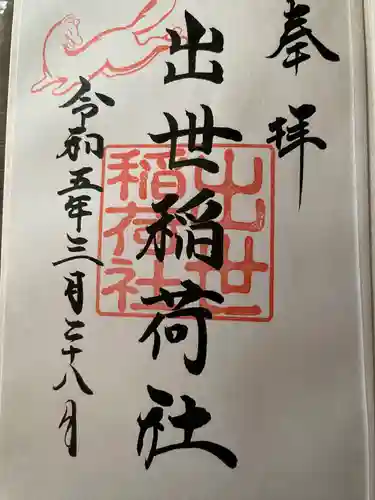 奉拝
出世稲荷社
出世
稲荷社
令和五年三月二十八日